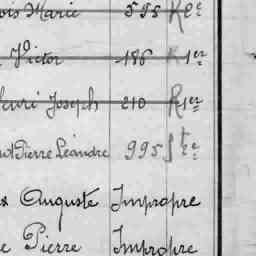 ois Marie 595 R 2e
Victor 186 R 1er
Henri Joseph 210 R 1er
Pierre Léandre 995
Auguste Impropre
Pierre Impropre